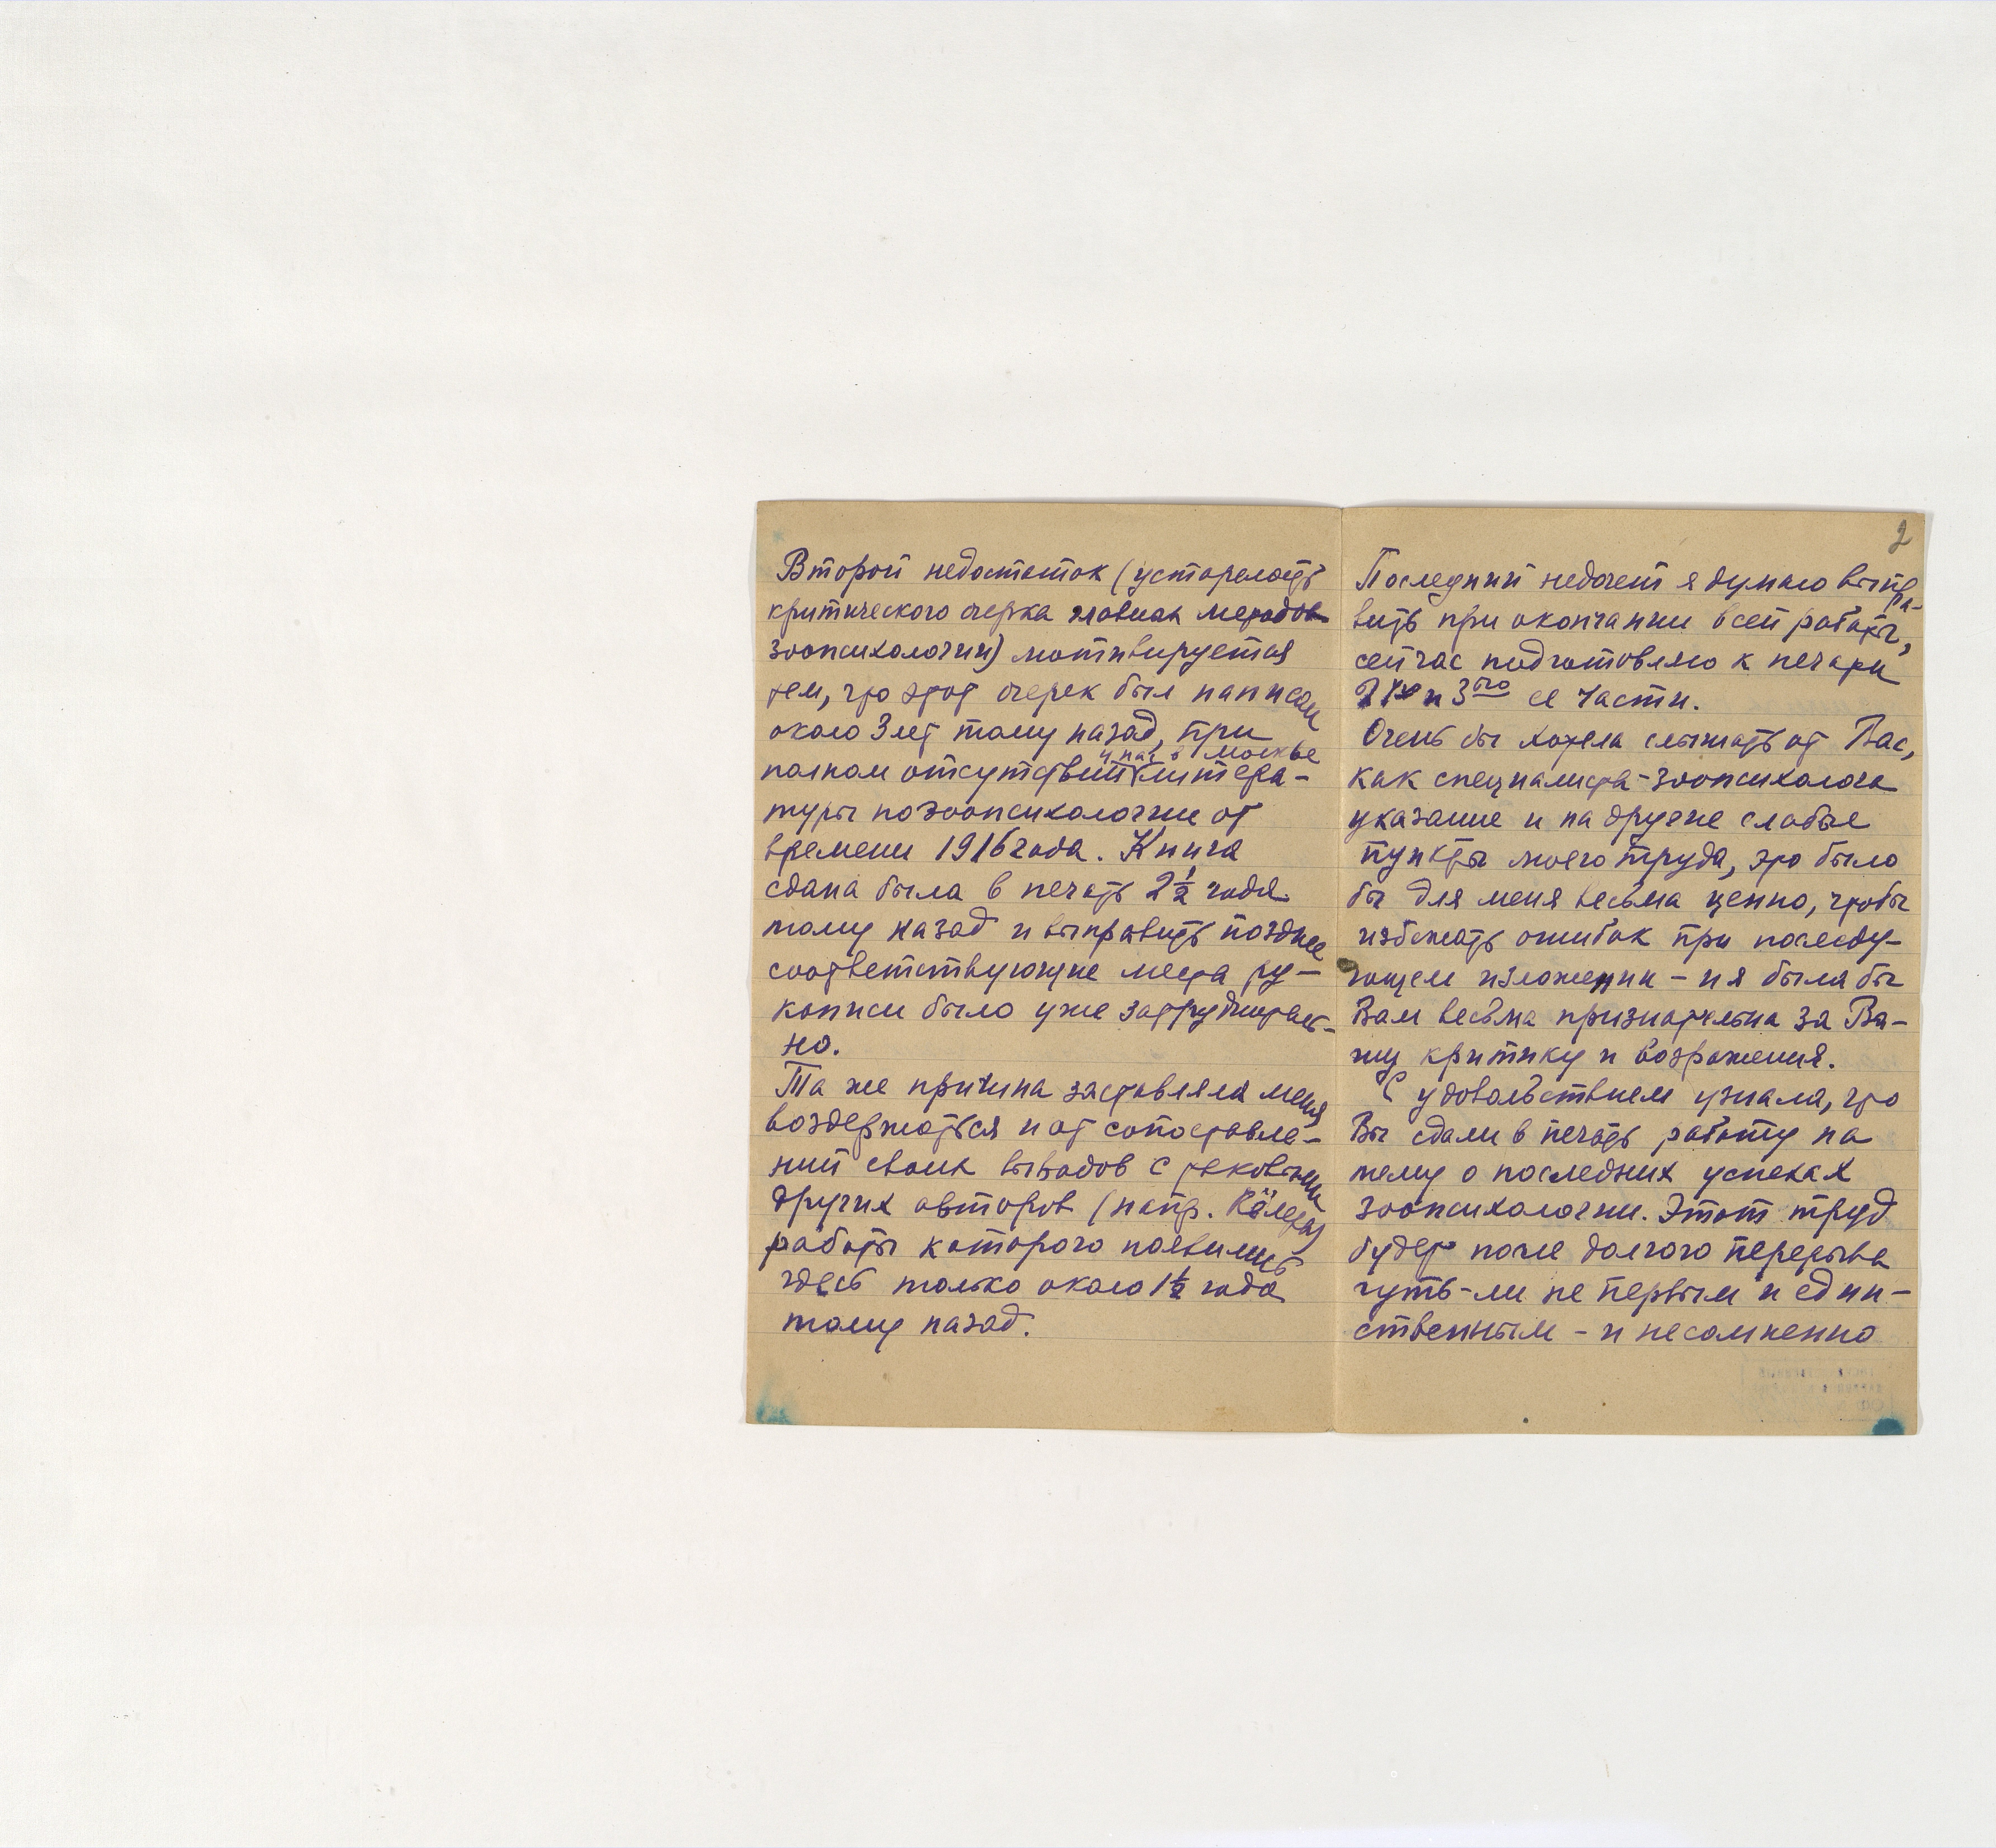 Второй недостаток (устарелость
критического очерка главных методов
зоопсихологии) мотивируется
тем, что этот очерк был написан
около 3 лет тому назад, при
у нас в Москве
полном отсутствии литера-
туры по зоопсихологии от
времени 1916 года. Книга
сдана была в печать 2½ года
тому назад и выправить позднее
соответствующие места ру-
кописи было уже затруднитель-
но.
Та же причина заставляла меня
воздержаться и от сопоставле-
ний своих выводов с таковыми
других авторов (напр. Кёлера,
работы которого появились
здесь только около 1½ года
тому назад.
2
Последний недочет я думаю выпра-
вить при окончании всей работы,
сейчас подготовляю к печати
и 3ью ее части.
Очень бы хотела слышать от Вас,
как специалиста-зоопсихолога
указание и на другие слабые
пункты моего труда, это было
бы для меня весьма ценно, чтобы
избежать ошибок при последу-
ющем изложении – и я была бы
Вам весьма признательна за Ва-
шу критику и возражения.
С удовольствием узнала, что
Вы сдали в печать работу на
тему о последних успехах
зоопсихологии. Этот труд
будет после долгого перерыва
чуть-ли не первым и един-
ственным – и несомненно